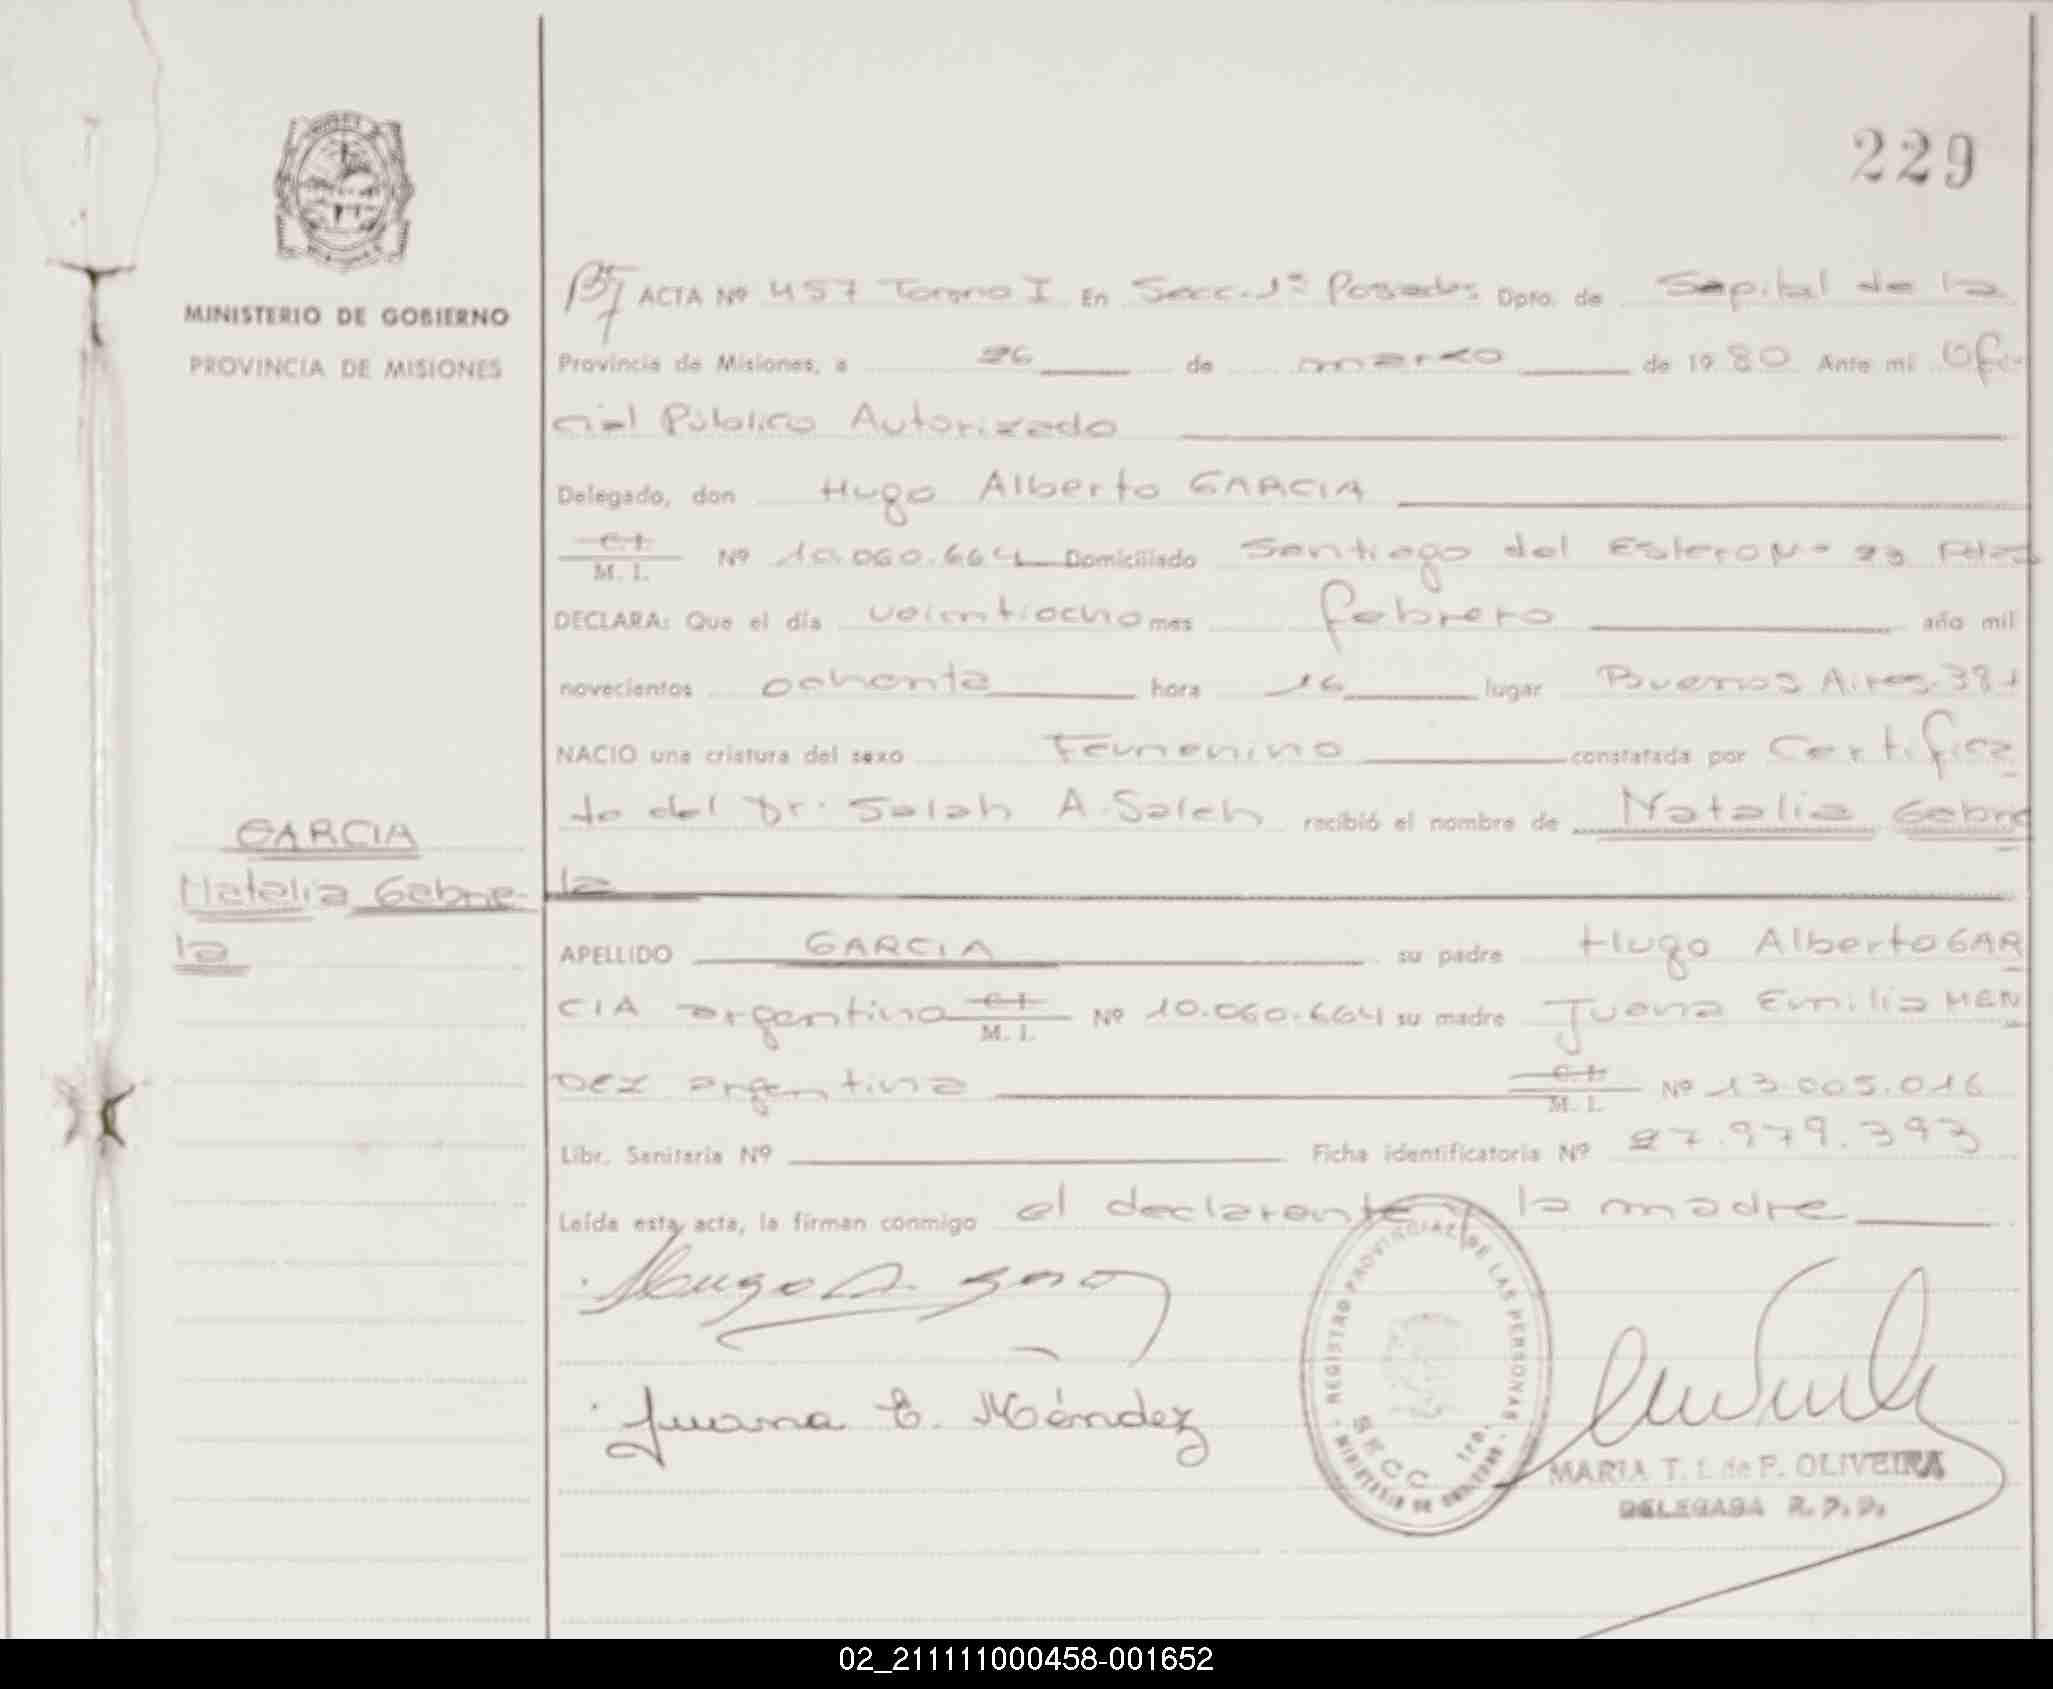 229
MINISTERIO DE GOBIERNO
PROVINCIA DE MISIONES
GARCIA
Natalia Gabrie-
la
ACTA Nº 457 Tomo I En Secc. 1ª Posadas Dpto. de Capital de la
Provincia de Misiones, a 26 de marzo de 1980 Ante mi Ofi-
cial Público Autorizado
Delegado, don Hugo Alberto GARCIA
C.I.
M. I. Nº 10.060.664 Domiciliado Santiago del Estero Nº 23 Pdas
DECLARA: Que el día veintiocho mes febrero año mil
novecientos ochenta hora 16 lugar Buenos Aires. 381
NACIO una criatura del sexo Femenino constatada por Certifica
do del Dr. Salah A. Saleh recibió el nombre de Natalia Gabrie
la
APELLIDO GARCIA su padre Hugo Alberto GAR
CIA argentino C.I. M. I. Nº 10.060.664 su madre Juana Emilia MEN
DEZ argentina C.I. M. I. Nº 13.005.016
Libr. Sanitaria Nº Ficha identificatoria Nº 27.979.393
Leída esta acta, la firman conmigo el declarante y la madre
Juana E. Méndez
REGISTRO PROVINCIAL DE LAS PERSONAS
SECC 1ra.
MINISTERIO DE GOBIERNO
MARIA T. L. de F. OLIVEIRA
DELEGADA R. P. P.
02_211111000458-001652